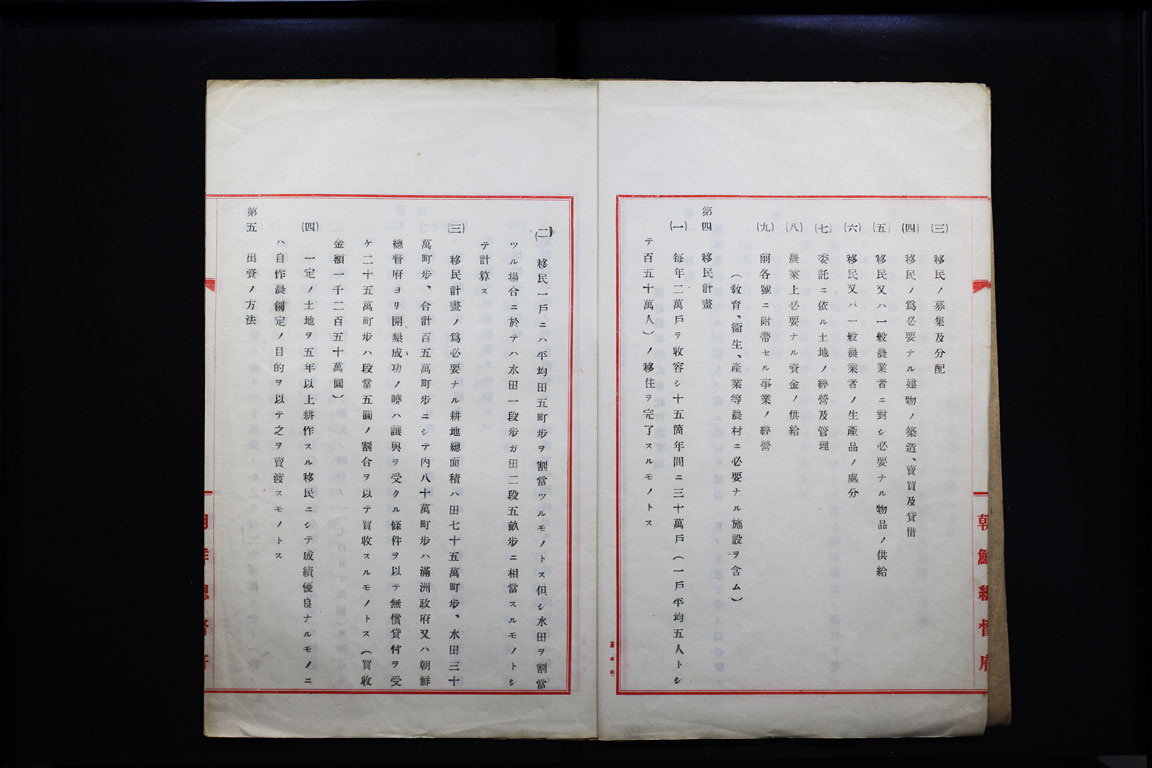 ㈢ 移民ノ募集及分配
㈣ 移民ノ爲必要ナル建物ノ築造、賣買及貸借
㈤ 移民又ハ一般農業者ニ對シ必要ナル物品ノ供給
㈥ 移民又ハ一般農業者ノ生產品ノ處分
㈦ 委託ニ依ル土地ノ經營及管理
㈧ 農業上必要ナル資金ノ供給
㈨ 前各號ニ附帶セル事業ノ經營
(敎育、衞生、產業等農村ニ必要ナル施設ヲ含ム)
第四 移民計畫
㈠ 每年二萬戶ヲ收容シ十五箇年間ニ三十萬戶(一戶平均五人トシ
テ百五十萬人)ノ移住ヲ完了スルモノトス
㈡ 移民一戶ニハ平均田五町步ヲ割當ツルモノトス但シ水田ヲ割當
ツル場合ニ於テハ水田一段步ガ田二段五畝步ニ相當スルモノトシ
テ計算ス
㈢ 移民計畫ノ爲必要ナル耕地總面積ハ田七十五萬町步、水田三十
萬町步、合計百五萬町步ニシテ內八十萬町步ハ滿洲政府又ハ朝鮮
總督府ヨリ開墾成功ノ曉ハ讓與ヲ受クル條件ヲ以テ無償貸付ヲ受
ケ二十五萬町步ハ段當五圓ノ割合ヲ以テ買收スルモノトス(買收
金額一千二百五十萬圓)
㈣ 一定ノ土地ヲ五年以上耕作スル移民ニシテ成績優良ナルモノニ
ハ自作農創定ノ目的ヲ以テ之ヲ賣渡スモノトス
第五 出資ノ方法
朝鮮總督府